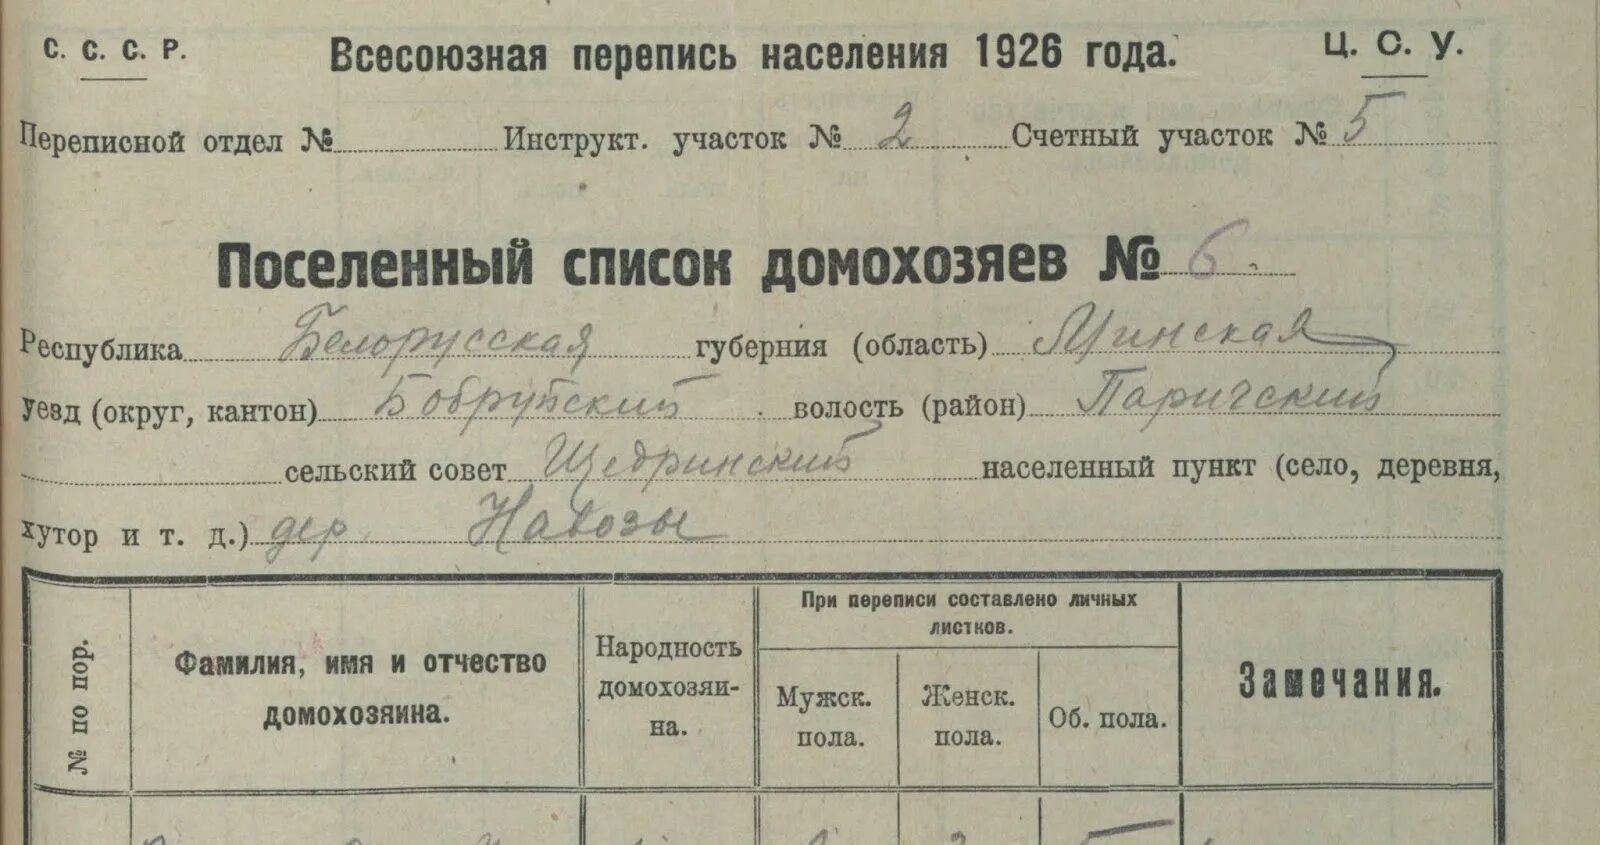 С. С. С. Р. Всесоюзная перепись населения 1926 года. Ц. С. У.
Переписной отдел № Инструкт. участок № 2 Счетный участок № 5
Поселенный список домохозяев № 6.
Республика Белорусская губерния (область) Минская
уезд (округ, кантон) Бобруйский волость (район) Паричский
сельский совет Щедринский населенный пункт (село, деревня,
хутор и т. д.) дер. Навозы
№ по пор.
Фамилия, имя и отчество
домохозяина.
Народность
домохозяи-
на.
При переписи составлено личных
листков.
Мужск.
пола.
Женск.
пола.
Об. пола.
Замечания.